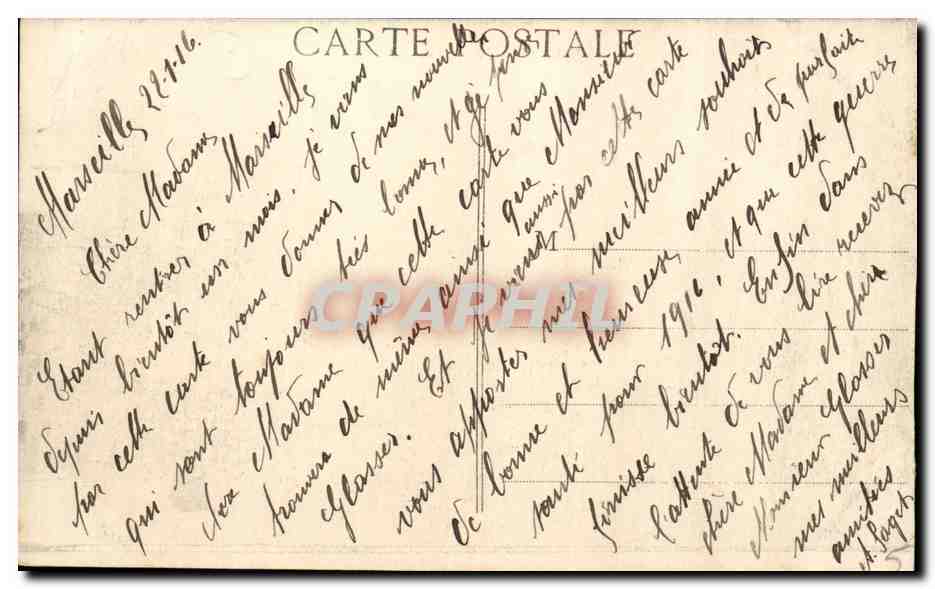 CARTE POSTALE
Marseille 22-1-16.
Chère Madame
Etant rentrer à Marseille
depuis bientôt un mois, je viens
par cette carte vous donner de mes nouvelles
qui sont toujours très bonnes, et
chère Madame que cette carte vous
trouvera de même ainsi que Monsieur
Glasser. Et je viens aussi par cette carte
vous apporter mes meilleurs souhaits
de bonne et heureuse année et de parfaite
santé pour 1916, et que cette guerre
finisse bientôt. Enfin dans
l'attente de vous lire recevez
chère Madame et chère
Monsieur Glasser
mes meilleurs
amitiés
A.
5
CPAPHIL